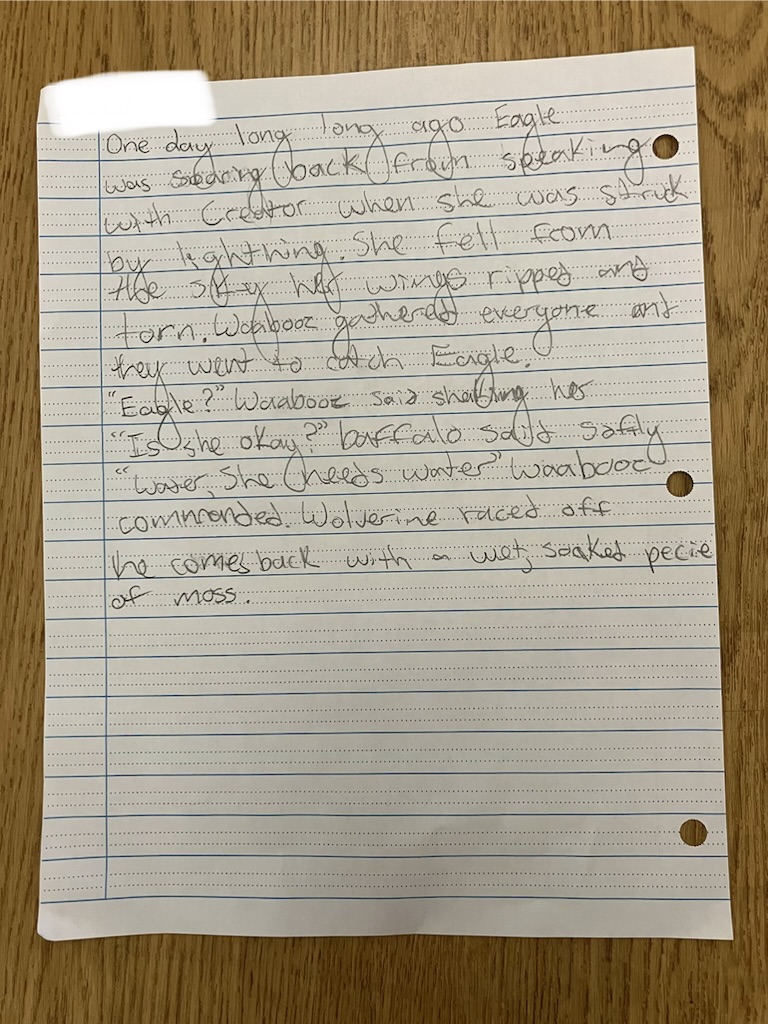 One day long long ago Eagle
was soaring back from speaking
with Creator when she was struck
by lighthning. She fell from
the sky her wings ripped and
torn. Waabooz gathered everyone and
they went to catch Eagle.
"Eagle?" Waabooz said shaking her
"Is she okay?" buffalo said softly
"Water, She needs water" Waabooz
commanded. Wolverine raced off
he comes back with a wet, soaked pecie
of moss.